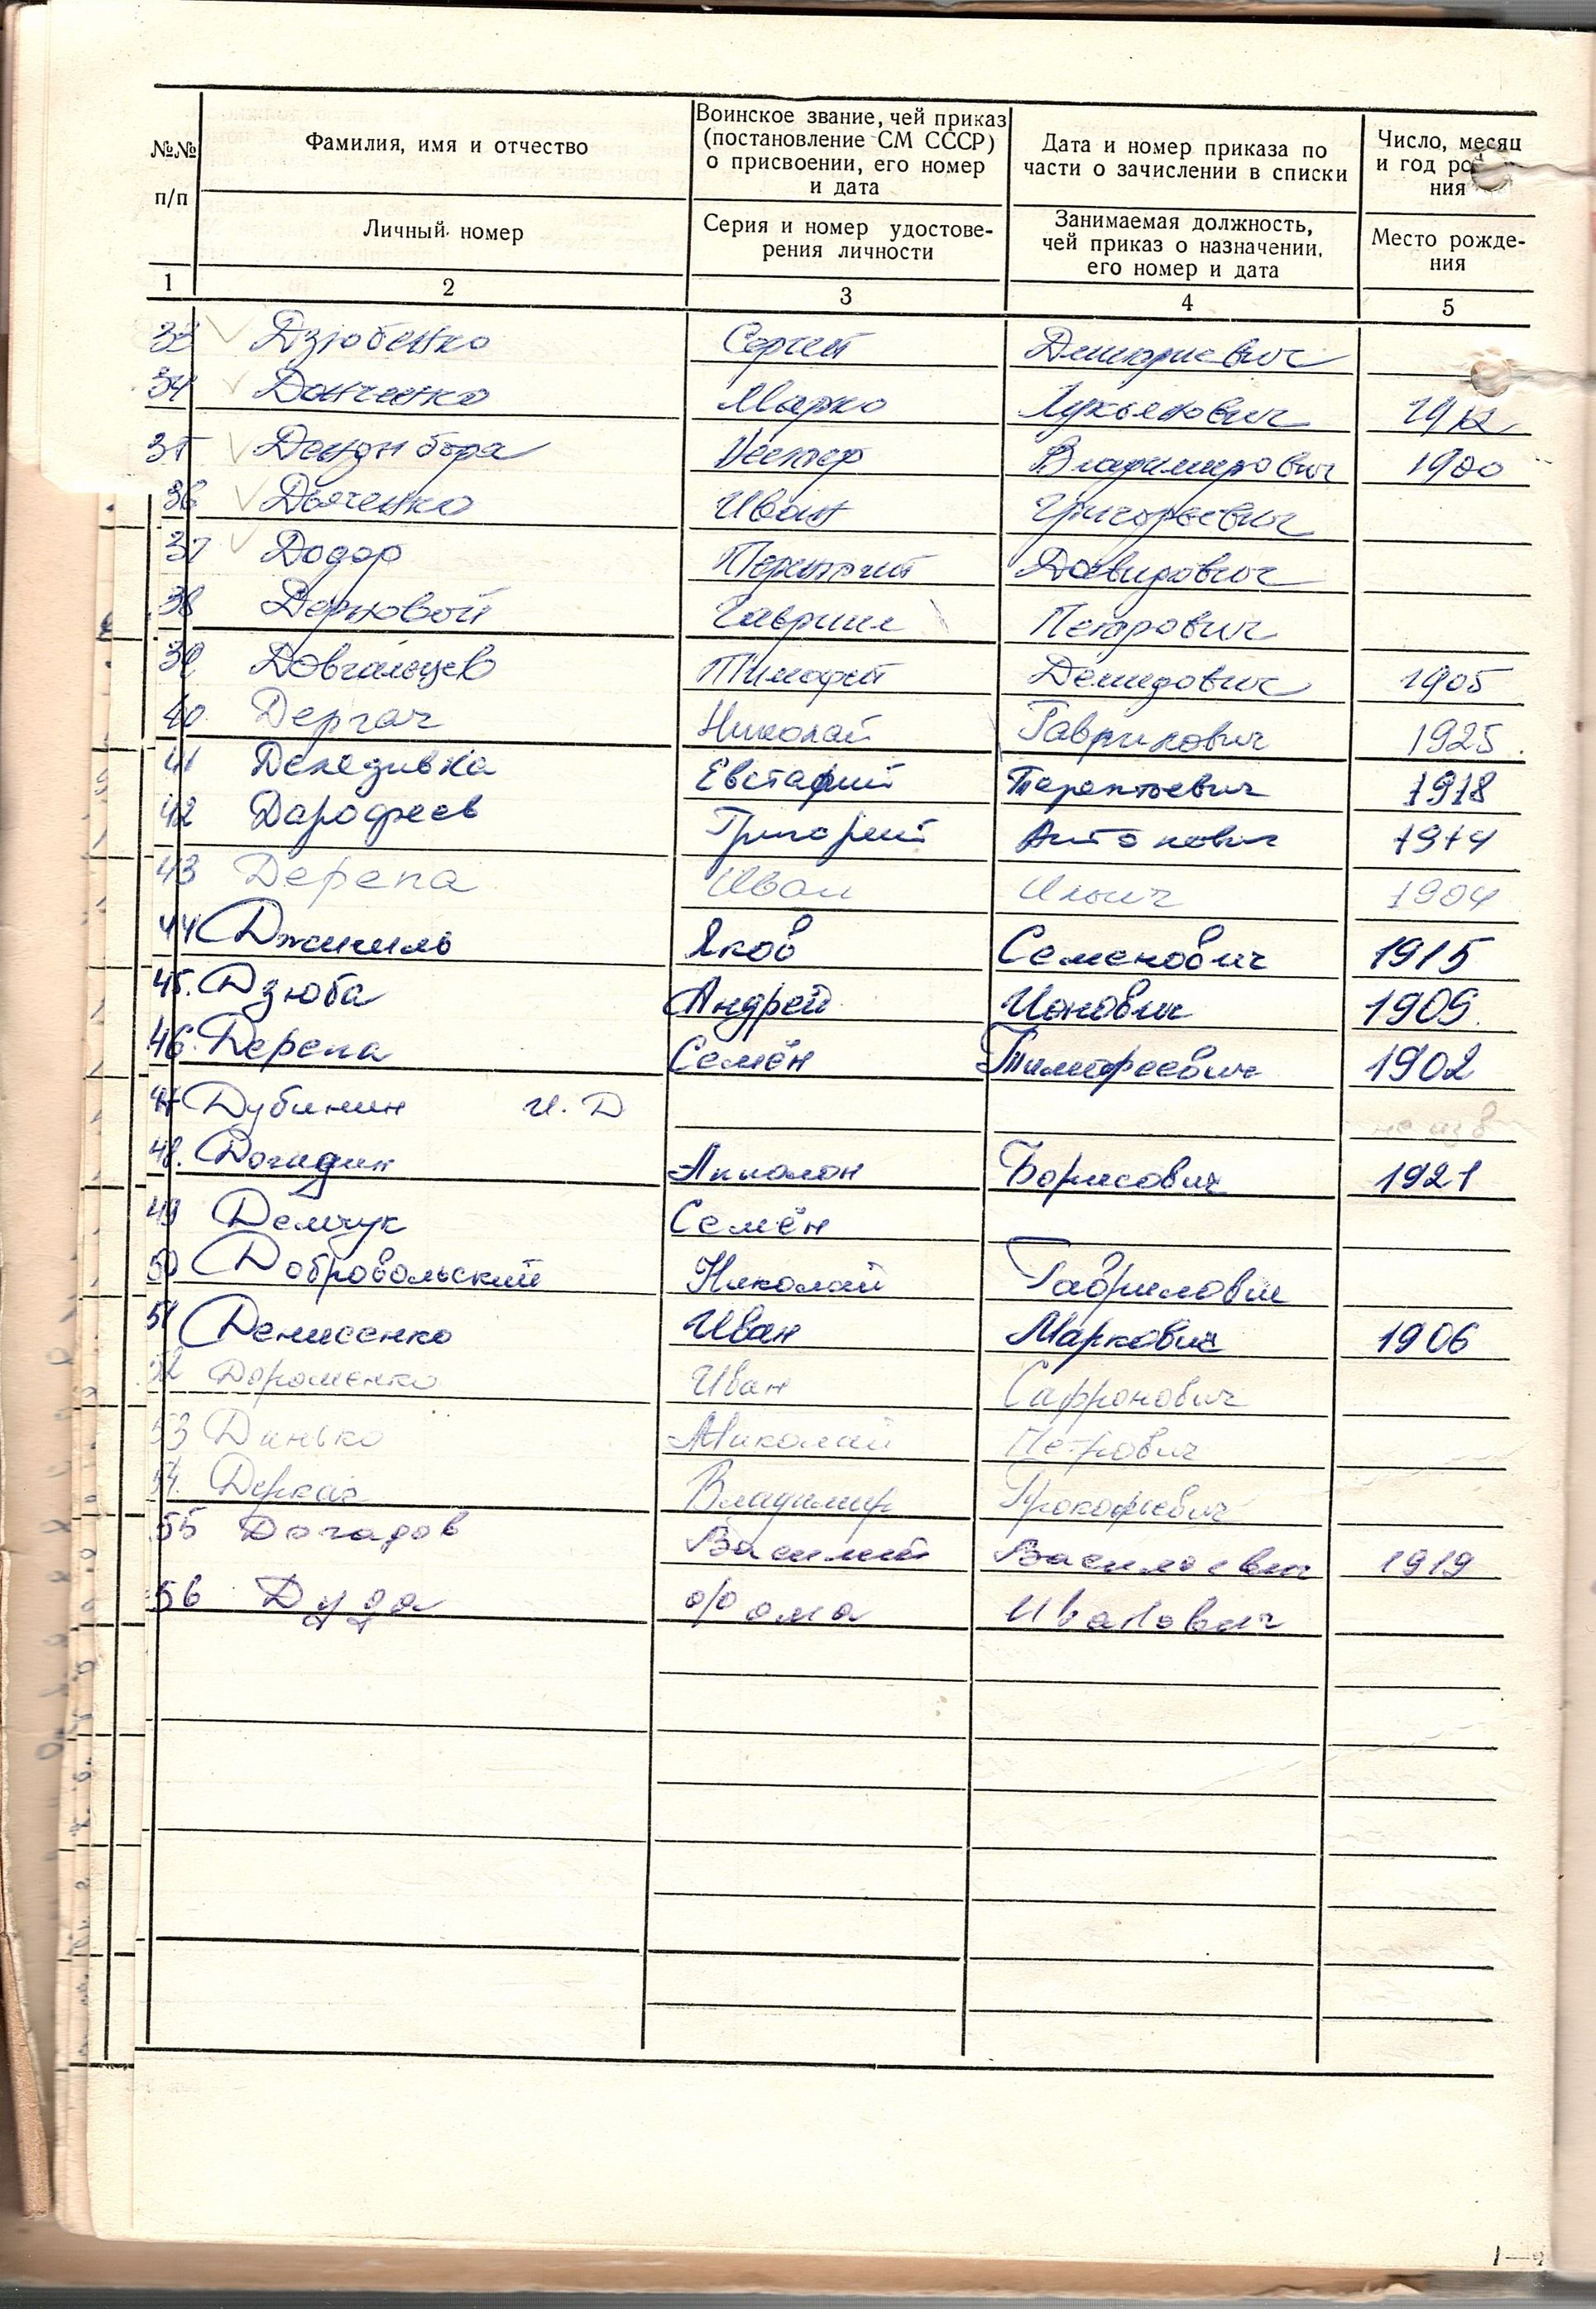 №№ п/п
Фамилия, имя и отчество
Личный номер
Воинское звание, чей приказ
(постановление СМ СССР)
о присвоении, его номер
и дата
Серия и номер удостове-
рения личности
Дата и номер приказа по
части о зачислении в списки
Занимаемая должность,
чей приказ о назначении,
его номер и дата
Число, месяц
и год
ния
Место рожде-
ния
1 2 3 4 5
33 Дзюбенко Сергей Дмитриевич
34 Данченко Марко Лукьянович 1912
35 Нестер Владимирович 1900
36 Дьяченко Иван Григорьевич
37 Додор Терентий Давидович
38 Дерновой Гавриил Петрович
39 Довгальцев Тимофей Демидович 1905
40 Дергач Николай Гаврилович 1925
41 Евстафий Терентьевич 1918
42 Дарофеев Григорий Антонович 1914
43 Дерепа Иван Ильич 1904
44 Джигиль Яков Семенович 1915
45. Дзюба Андрей Ионович 1909
46. Дерепа Семён Тимофеевич 1902
47 Дубинин И. Д не изв
48. Догадин Апполон Борисович 1921
49 Демчук Семён
50 Добровольский Николай Гаврилович
51 Денисенко Иван Маркович 1906
52 Дороменко Иван Сафронович
53 Динько Николай Петрович
54. Деркач Владимир Прокофьевич
55 Догадов Василий Васильевич 1919
56 Дуда Фома Иванович